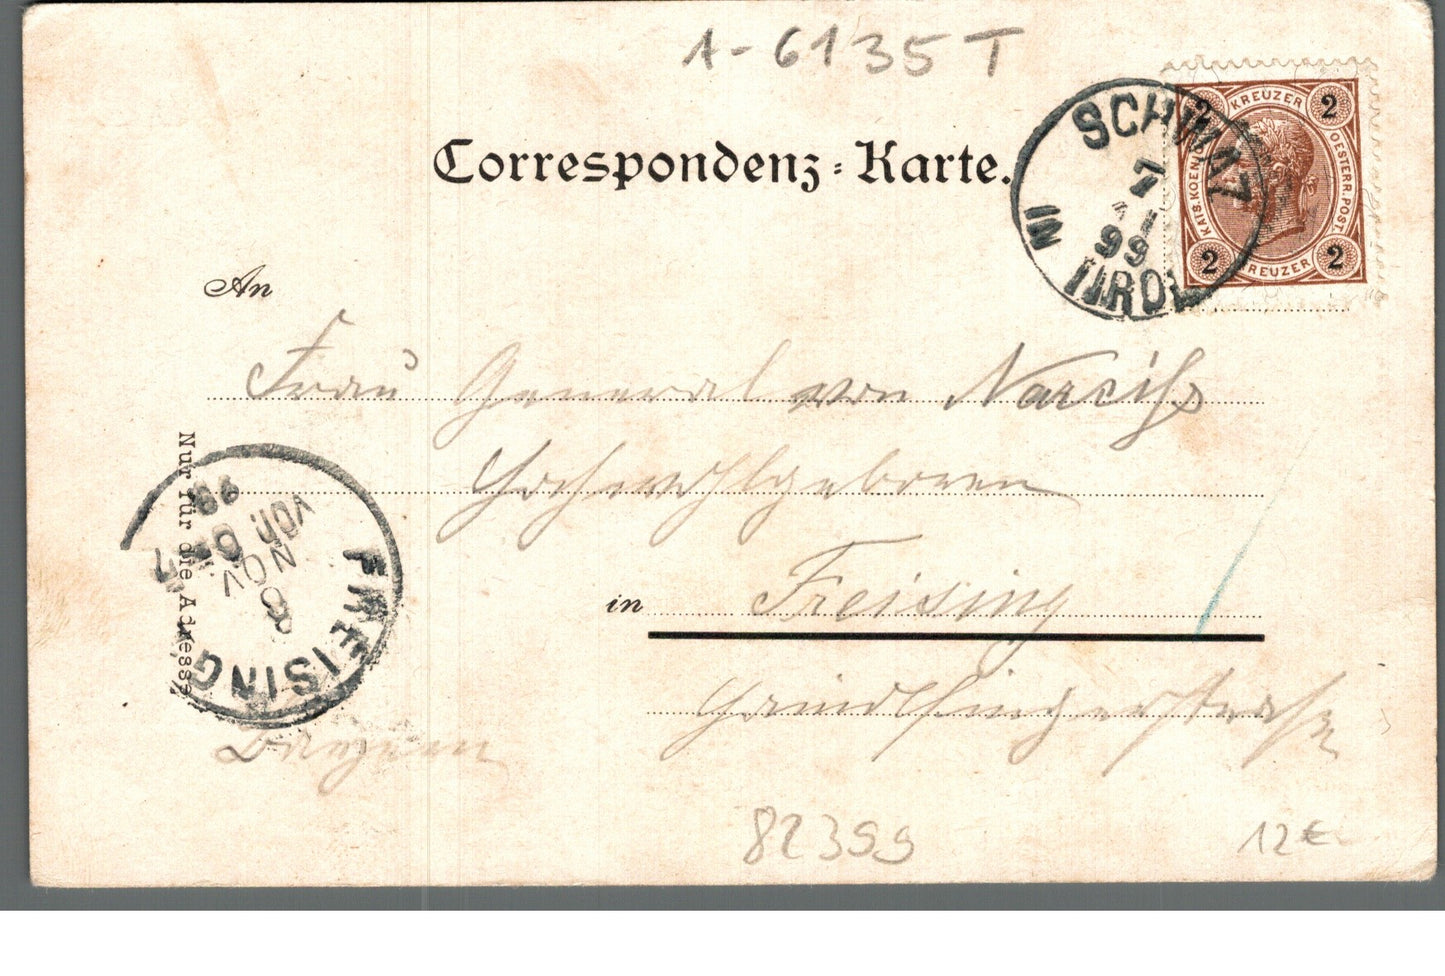 A-6135T
Correspondenz-Karte.
SCHWAZ
7
11
99
IN TIROL
2 KREUZER 2
KAIS. KOEN. OESTERR. POST
2 KREUZER 2
An
Frau General von Narciß
Hochwohlgeboren
in Freising
Bayern
Nur für die Adresse
FREISING
8
NOV
99
82399
12€